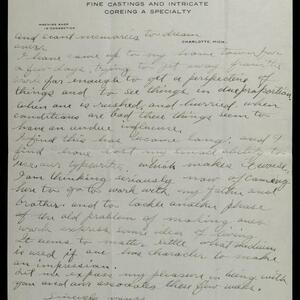 FINE CASTINGS AND INTRICATE
COREING A SPECIALTY
MACHINE SHOP
IN CONNECTION
CHARLOTTE, MICH.
and want memories to dream
over.
I have come up to my home town for
a few days, trying to get away from the
work far enough to get a perspective of
things and to see things in due proportion
when one is rushed and hurried when
conditions are bad these seem to
have an undue influence.
I find this has become long, and I
find
makes
I am thinking seriously now of coming
here to go to work with my father and
brother and to tackle another phase
of the old problem of making one's
work express some idea of living.
It seems to matter little what medium
is used if one has character to make
an impression.
Let me express my pleasure in being with
you and your associates these few weeks.
Sincerely yours